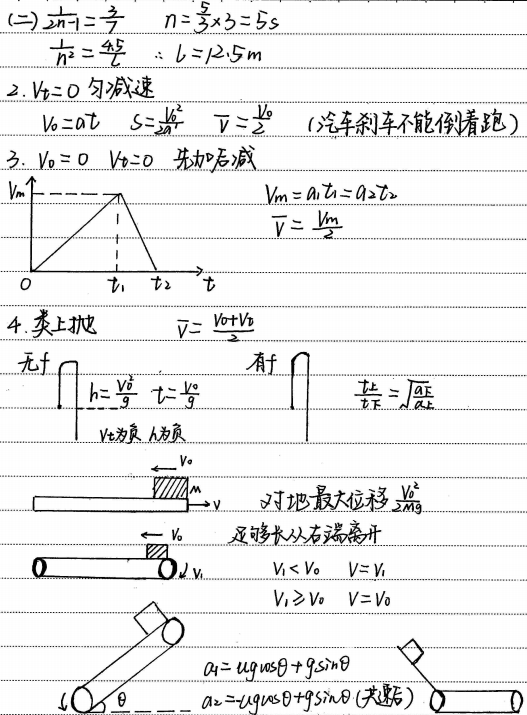 (二) 1/(2n-1) = 3/7   n = 5/3 × 3 = 5s
1/n² = 4.5/L   ∴ L = 12.5m
2. Vt=0 匀减速
V0=at   S=V0²/2a   V̄=V0/2   (汽车刹车不能倒着跑)
3. V0=0   Vt=0   先加后减
Vm
Vm=a1t1=a2t2
V̄=Vm/2
0   t1   t2   t
4. 类上抛   V̄=(V0+Vt)/2
无f   有f
h=V0²/g   t=V0/g   t上/t下=√(a下/a上)
Vt为负 h为负
V0
M   V   对地最大位移 V0²/2Mg
足够长从右端离开
V0
V1
V1<V0   V=V1
V1≥V0   V=V0
a1=ugcosθ+gsinθ
θ   a2=-ugcosθ+gsinθ (共速后)